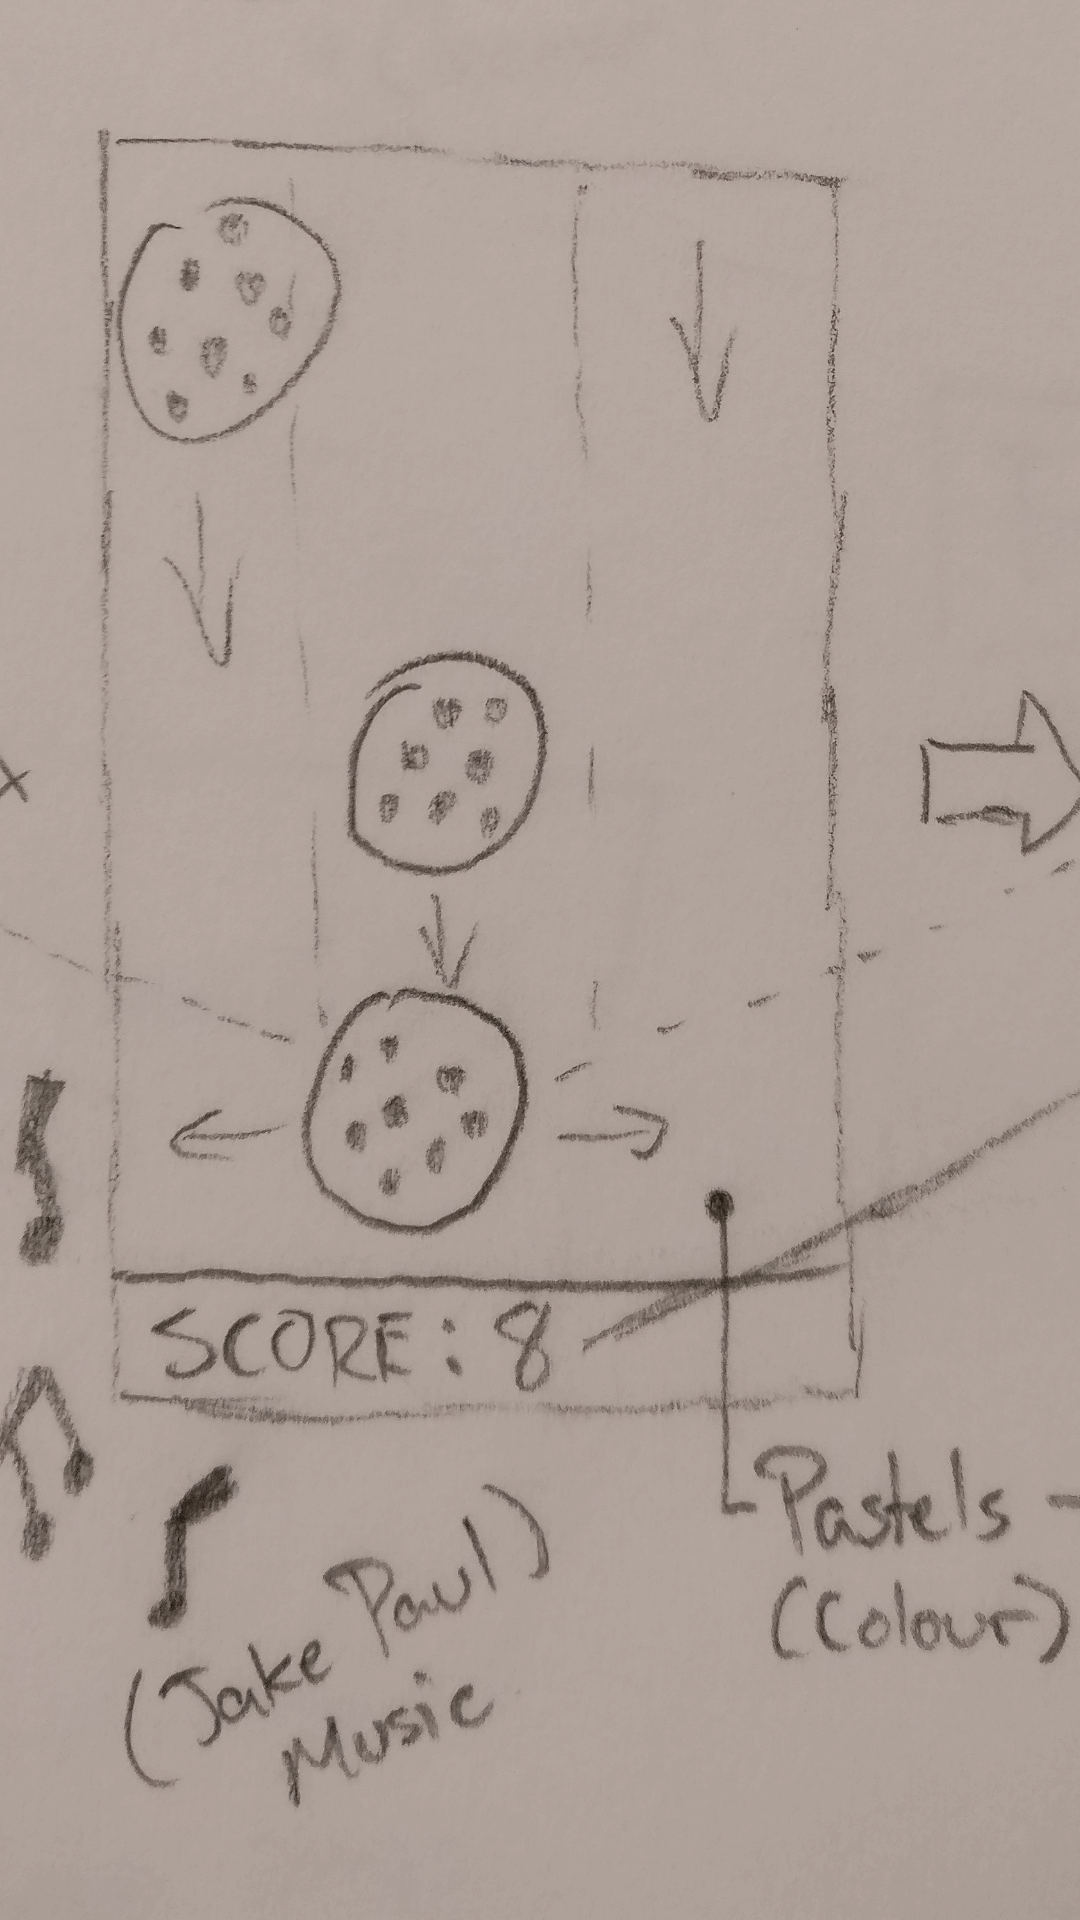 x
SCORE: 8
Pastels -
(Colour)
(Jake Paul)
Music